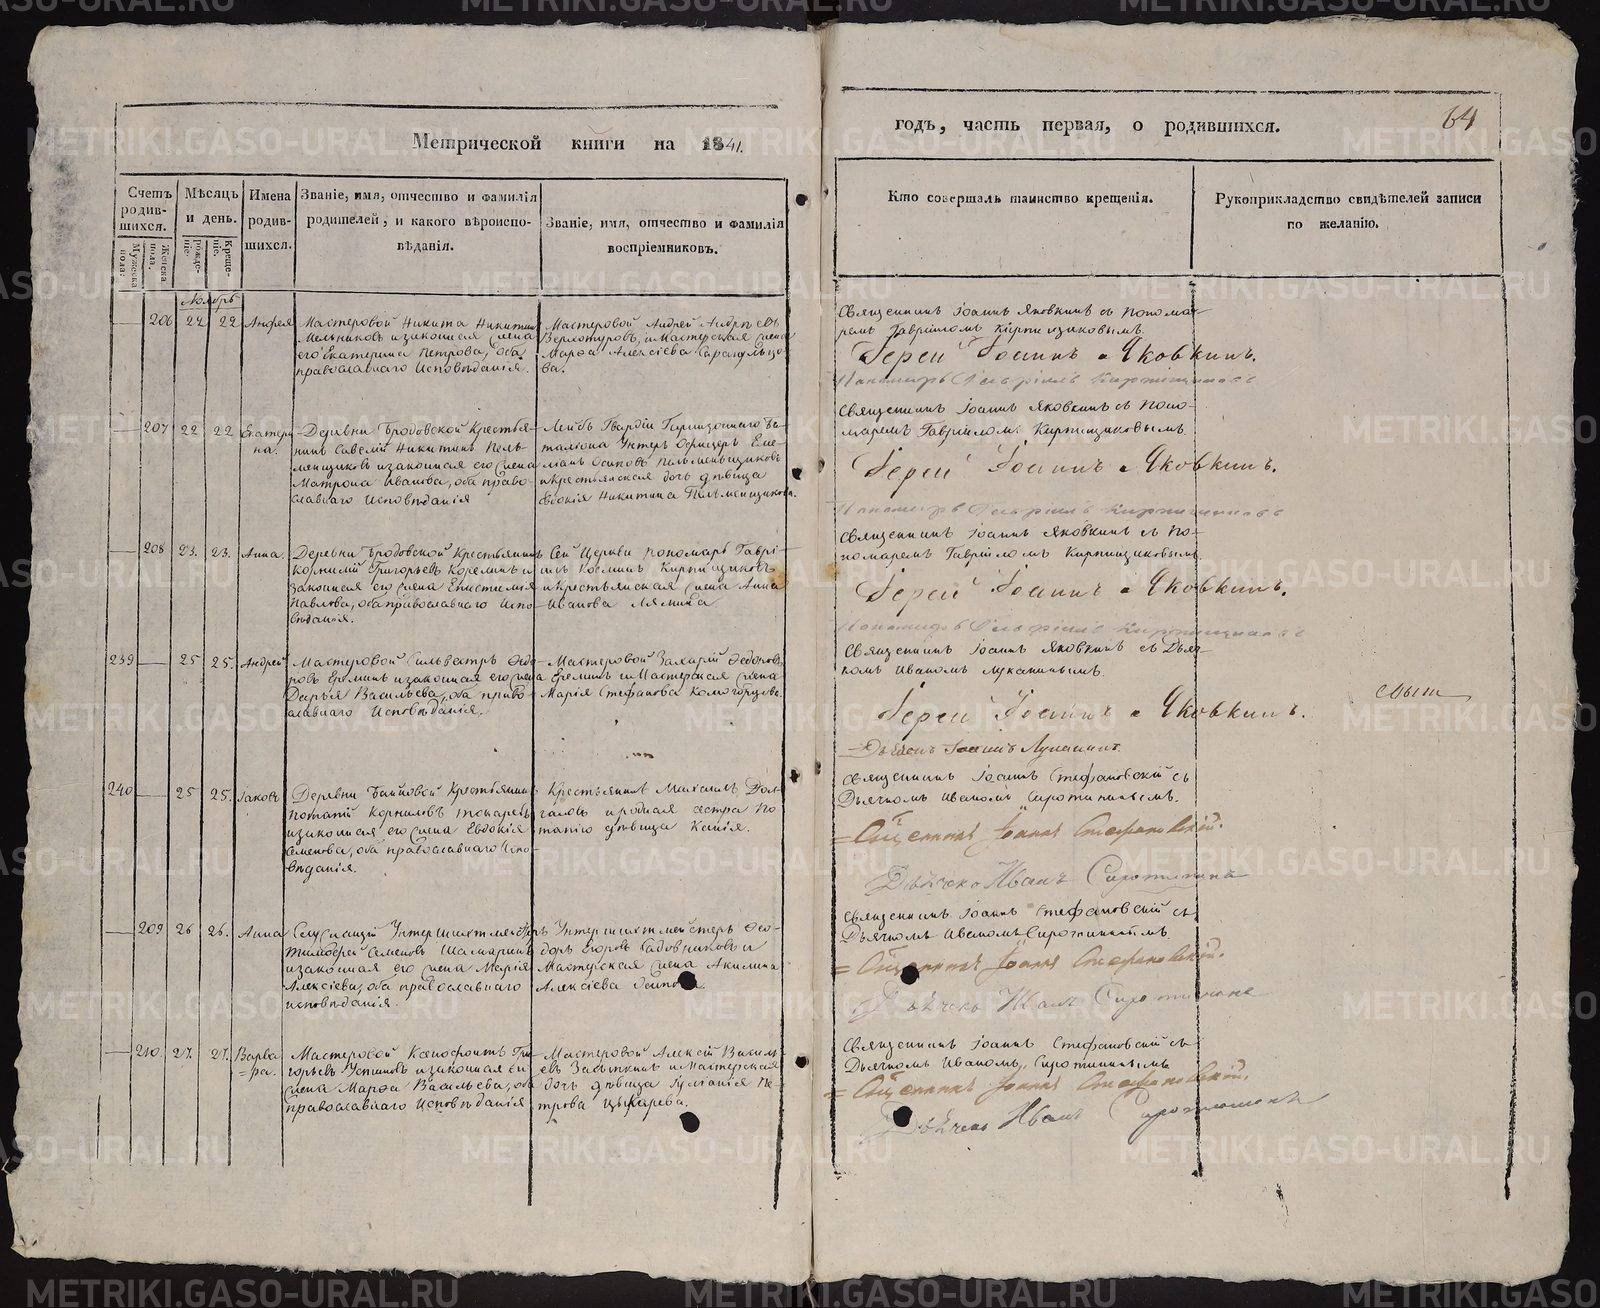 Метрической книги на 1841.
годъ, часть первая, о родившихся.
64
Счетъ родив-
шихся.
Мужеска пола.
Женска пола.
Мѣсяцъ и день.
рожде-
ніе.
Креще-
ніе.
Имена родив-
шихся.
Званіе, имя, отчество и фамилія
родителей, и какого вѣроиспо-
вѣданія.
Званіе, имя, отчество и фамилія
воспріемниковъ.
Кто совершалъ таинство крещенія.
Рукоприкладство свидѣтелей записи
по желанію.
Ноябрь
206 22 22
Мастеровой Никита Никитинъ
Мельниковъ и законная жена
его Екатерина Петрова, оба
православнаго исповѣданія.
Мастеровой Андрей
Верхотуровъ, и Мастерская жена
Марфа Алексіева Сарапульцо-
ва.
Священникъ Іоаннъ Яковкинъ съ понома-
ремъ Гавріиломъ Кирпищиковымъ.
Іерей Іоаннъ Яковкинъ.
Пономарь Гавріилъ Кирпищиковъ
207 22 22 Екатери-
на.
Деревни Бродовской Крестья-
нинъ Савелій Никитинъ Пель-
менщиковъ и законная его жена
Матрона Иванова, оба право-
славнаго исповѣданія
Лейбъ Гвардіи Гарнизоннаго Ба-
таліона Унтеръ Офицеръ Еме-
ліанъ Осиповъ Пельменьщиковъ
и крестьянская дочь дѣвица
Евдокія Никитина Пельменщикова.
Священникъ Іоаннъ Яковкинъ съ поно-
маремъ Гавріиломъ Кирпищиковымъ
Іерей Іоаннъ Яковкинъ.
Пономарь Гавріилъ Кирпищиковъ
208 23. 23. Анна.
Деревни Бродовской Крестьянинъ
Корнилій Григорьевъ Корелинъ и
законная его жена Епистимія
Павлова, оба православнаго испо-
вѣданія.
Сей Церкви пономарь Гаврі-
илъ Косминъ Кирпищиковъ
и крестьянская жена Анна
Иванова Лямина
Священникъ Іоаннъ Яковкинъ съ по-
номаремъ Гавріиломъ Кирпищиковымъ
Іерей Іоаннъ Яковкинъ.
Пономарь Гавріилъ Кирпищиковъ
239 25 25. Андрей
Мастеровой Сильвестръ Ѳедо-
ровъ Ереминъ и законная его жена
Дарья Васильева, оба право-
славнаго исповѣданія.
Мастеровой Захарій Ѳедоровъ
Ереминъ и Мастерская жена
Марія Стефанова Комогорцова.
Священникъ Іоаннъ Яковкинъ съ Дьяч-
комъ Иваномъ Луканинымъ.
Іерей Іоаннъ Яковкинъ.
Дьячекъ Іоаннъ Луканинъ.
240 25 25. Іаковъ
Деревни Байновой Крестьянинъ
Потапій Корниловъ Токаревъ
и законная его жена Евдокія
Семенова, оба православнаго испо-
вѣданія.
Крестьянинъ Михаилъ Дол-
галовъ и родная сестра По-
тапію дѣвица Ксенія.
Священникъ Іоаннъ Стефановскій съ
Дьячкомъ Иваномъ Сиротининымъ.
Священникъ Іоаннъ Стефановскій.
Дьячекъ Иванъ Сиротининъ
209 26 26. Анна
Служащій Унтершихтмейстеръ
Тимофей Семеновъ Шамаринъ
и законная его жена Марія
Алексіева, оба православнаго
исповѣданія.
Унтершихтмейстеръ Ѳео-
доръ Егоровъ Садовниковъ и
Мастерская жена Акилина
Алексіева Осипова.
Священникъ Іоаннъ Стефановскій съ
Дьячкомъ Иваномъ Сиротининымъ.
Священникъ Іоаннъ Стефановскій.
Дьячекъ Иванъ Сиротининъ
210 27. 27. Варва-
ра.
Мастеровой Ксенофонтъ Гри-
горьевъ Устиновъ и законная его
жена Марфа Васильева, оба
православнаго исповѣданія
Мастеровой Алексій Василь-
евъ Забыкинъ и Мастерская
дочь дѣвица Іуліанія Пе-
трова Цыкарева.
Священникъ Іоаннъ Стефановскій съ
Дьячкомъ Иваномъ Сиротининымъ
Священникъ Іоаннъ Стефановскій.
Дьячекъ Иванъ Сиротининъ
METRIKI.GASO-URAL.RU